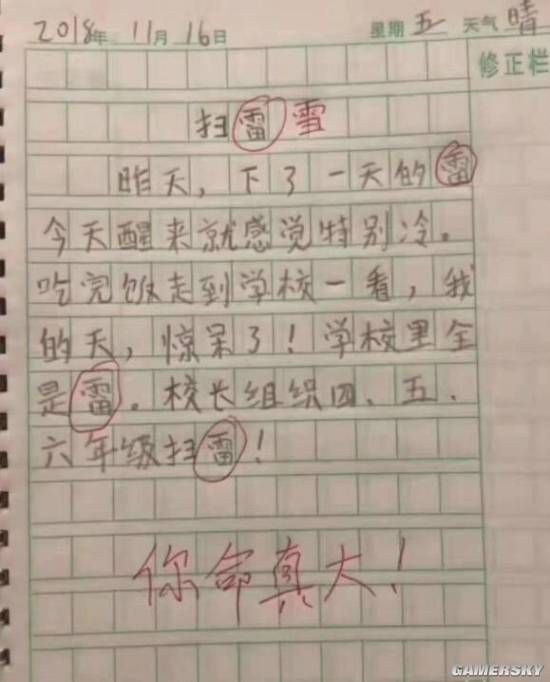 2018年 11月 16日 星期 五 天气 晴
修正栏
扫雷 雪
昨天，下了一天的雷
今天醒来就感觉特别冷。
吃完饭走到学校一看，我
的天，惊呆了！学校里全
是雷。校长组织四、五、
六年级扫雷！
你命真大！
GAMERSKY